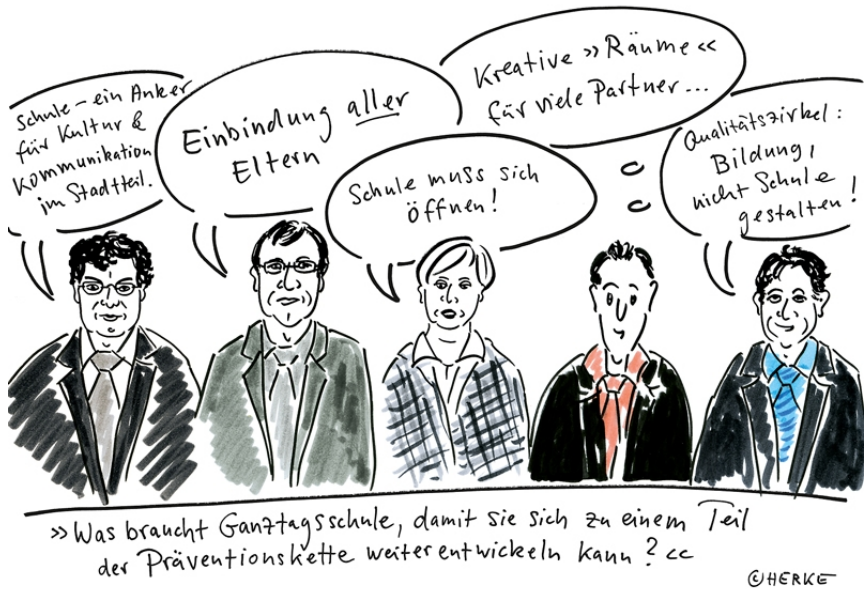 Schule – ein Anker
für Kultur &
Kommunikation
im Stadtteil.
Einbindung aller
Eltern
Schule muss sich
öffnen!
Kreative »Räume«
für viele Partner...
Qualitätszirkel:
Bildung,
nicht Schule
gestalten!
»Was braucht Ganztagsschule, damit sie sich zu einem Teil
der Präventionskette weiterentwickeln kann?«
©HERKE